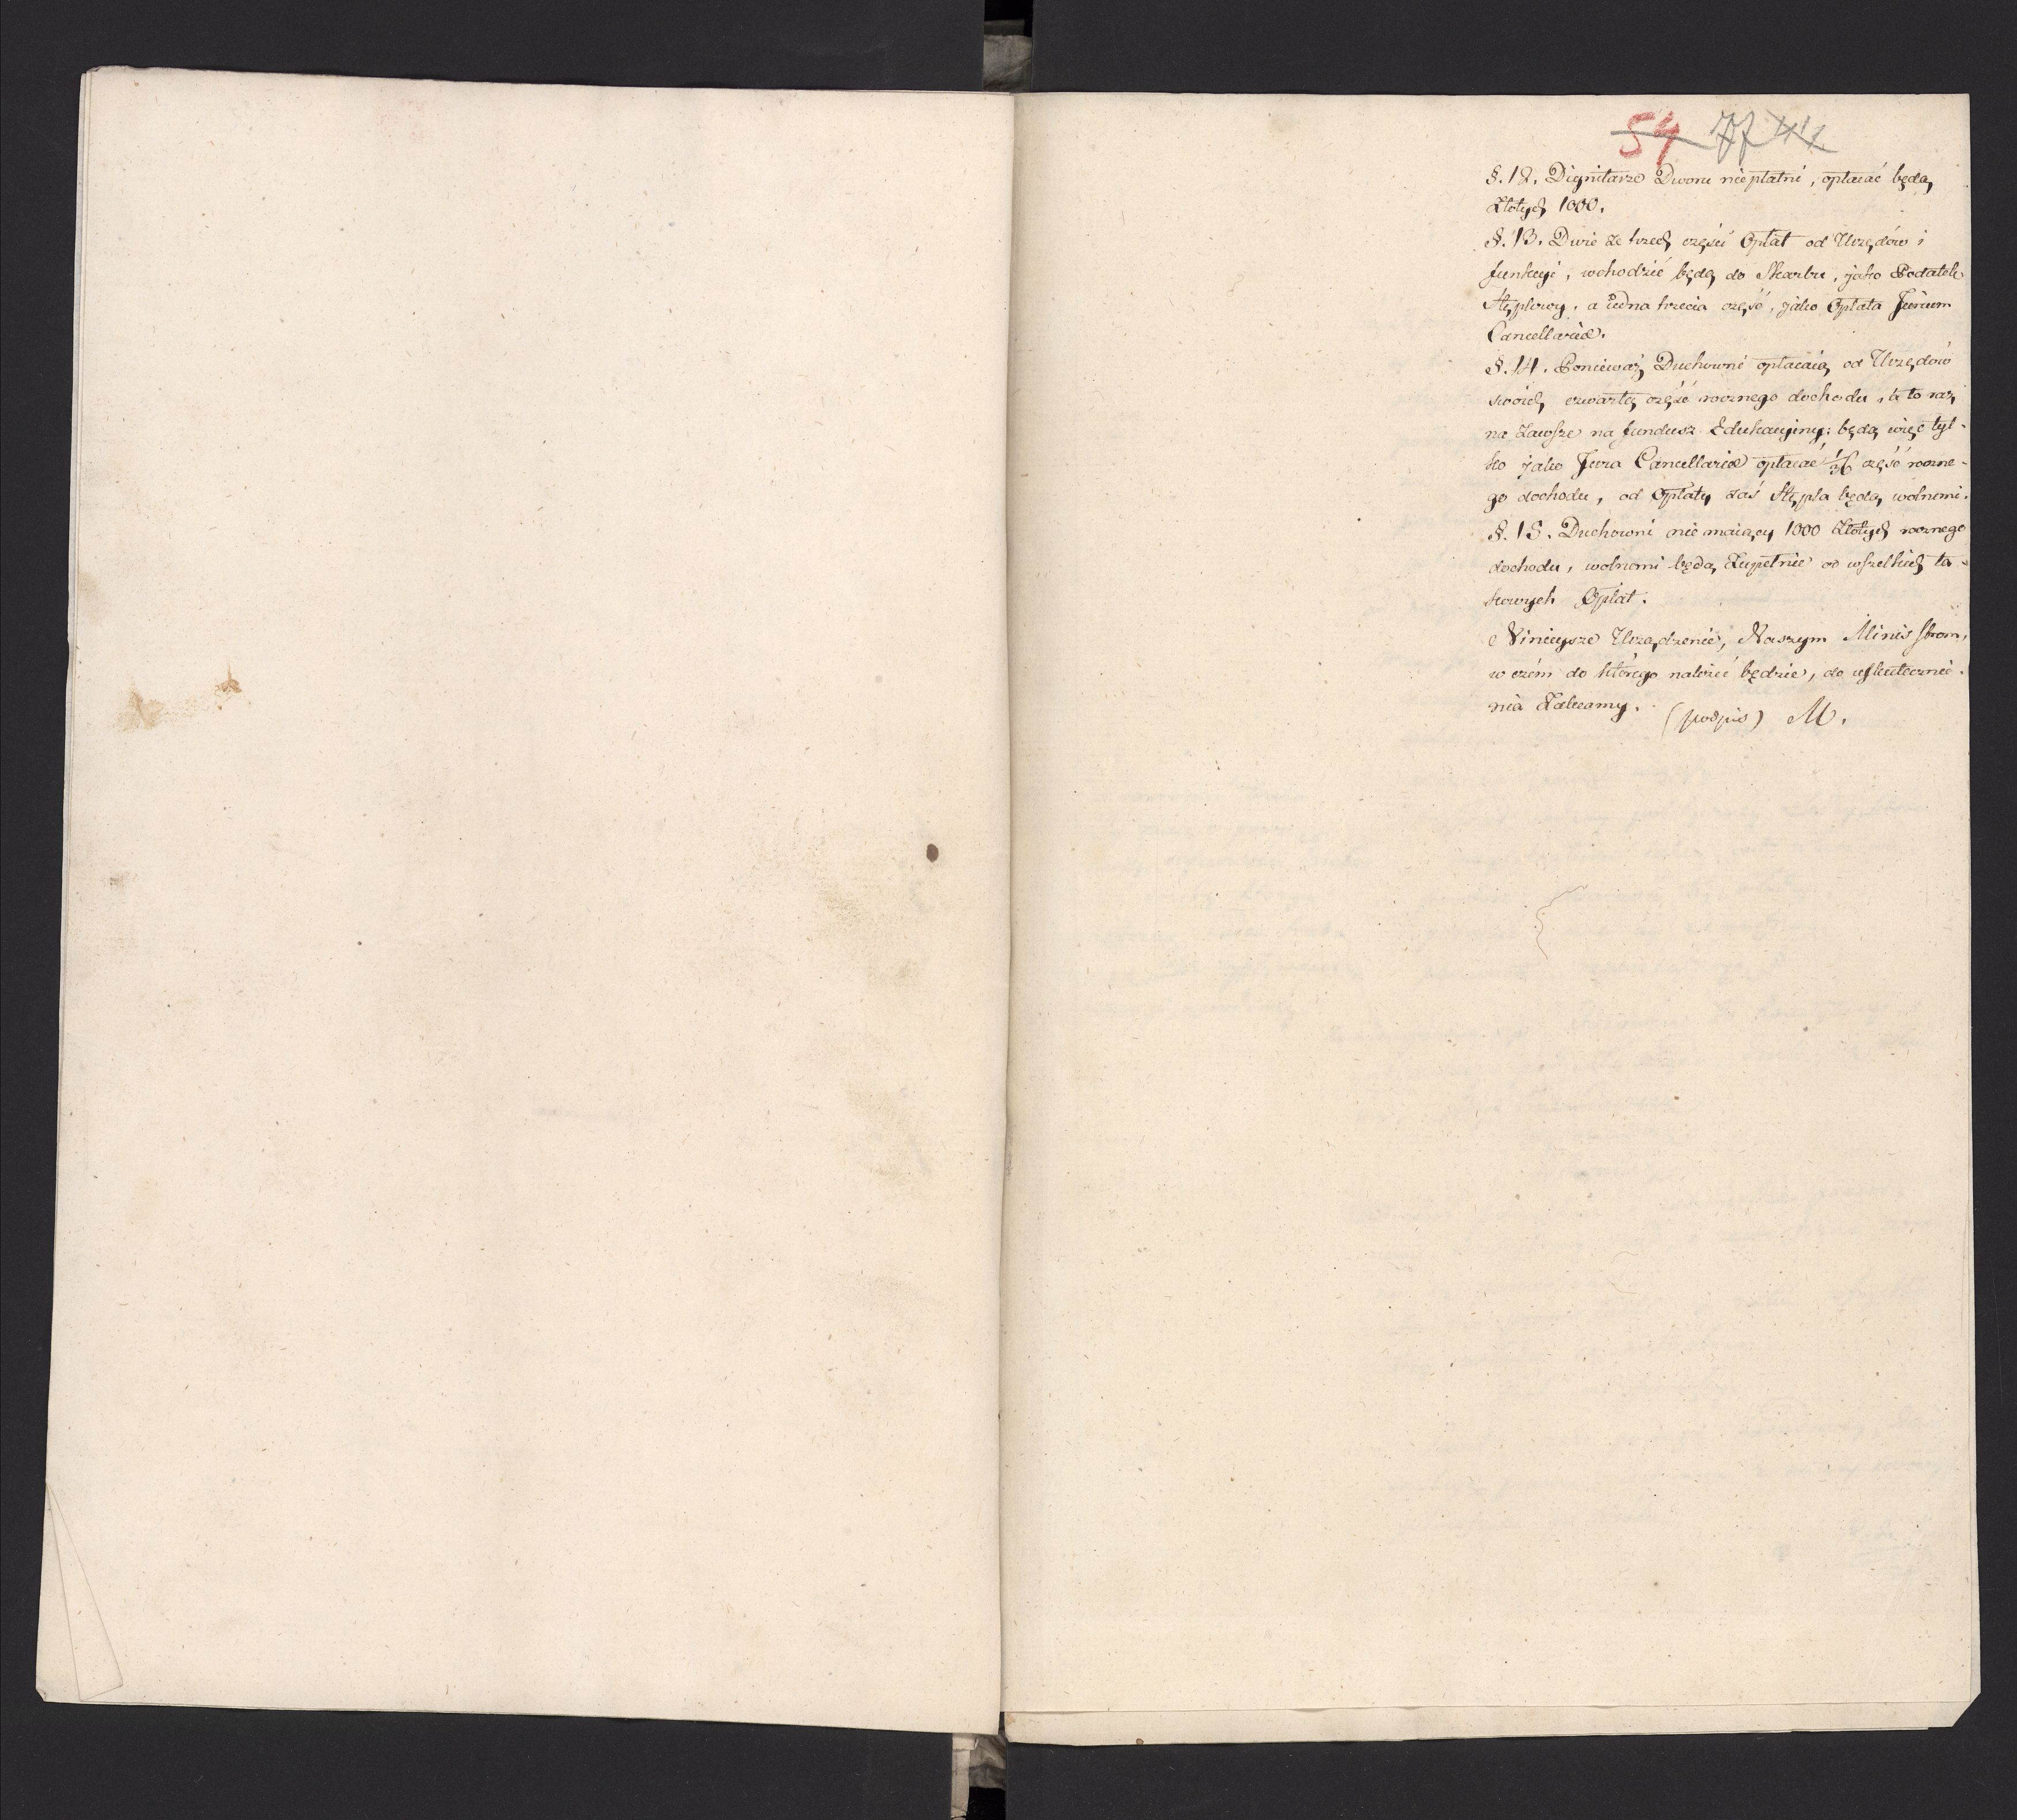 54 77
§. 12. Dignitarze Dworu nie płatni, opłacać będą
Złotych 1000.
§. 13. Dwie ze trzech części Opłat od Urzędów i
funkcyi, wchodzić będą do Skarbu, jako Podatek
Stęplowy, a iedna trzecia część, jako Opłata Jurium
Cancellariæ.
§. 14. Ponieważ Duchowni opłacaią od Urzędów
swoich czwartą część rocznego dochodu, to raz
na zawsze na fundusz Edukacyiny: będą więc tyl-
ko jako Jura Cancellariæ opłacać 1/36 część roczne-
go dochodu, od Opłaty zaś Stępla będą wolnemi.
§. 15. Duchowni nie maiący 1000 Złotych rocznego
dochodu, wolnemi będą zupełnie od wszelkich ta-
kowych Opłat.
Ninieysze Urządzenie, Naszym Ministrom,
w czém do którego należeć będzie, do uskutecznie-
nia Zalecamy.
(podpis) M.